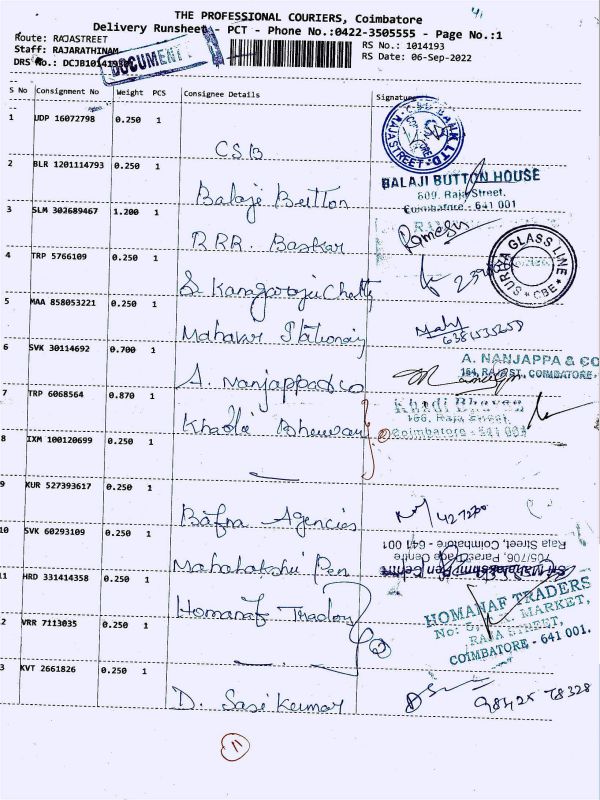 THE PROFESSIONAL COURIERS, Coimbatore
Delivery Runsheet - PCT - Phone No.:0422-3505555 - Page No.:1
Route: RAJASTREET
RS No.: 1014193
Staff: RAJARATHINAM
RS Date: 06-Sep-2022
DRS No.:
DOCUMENT
S No Consignment No Weight PCS Consignee Details Signature
1 UDP 16072798 0.250 1
CSB
CSB BANK LTD. RAJASTREET
2 BLR 1201114793 0.250 1
Balaje Button
BALAJI BUTTON HOUSE
609, Raja Street,
Coimbatore - 641 001
3 SLM 302689467 1.200 1
RRR. Baskar
Ramesh
4 TRP 5766109 0.250 1
SURYA GLASS LINE CBE
5 MAA 858053221 0.250 1
Mahavir Stationay
6 SVK 30114692 0.700 1
A. Nanjappa & co
A. NANJAPPA & CO
164, RAJA ST, COIMBATORE.
7 TRP 6068564 0.870 1
Khadi Bhavan
166, Raja Street,
Coimbatore - 641 001
8 IXM 100120699 0.250 1
9 KUR 527393617 0.250 1
Bafna Agencies
10 SVK 60293109 0.250 1
Mahalakshmi Pen
Sri Mahalakshmi Pen Centre
705/706, Parade Centre
Raja Street, Coimbatore - 641 001
11 HRD 331414358 0.250 1
Homanaf Traders
HOMANAF TRADERS
MARKET,
RAJA STREET,
COIMBATORE - 641 001.
2 VRR 7113035 0.250 1
2
3 KVT 2661826 0.250 1
D. Sasi Kumar
98425 78328
11